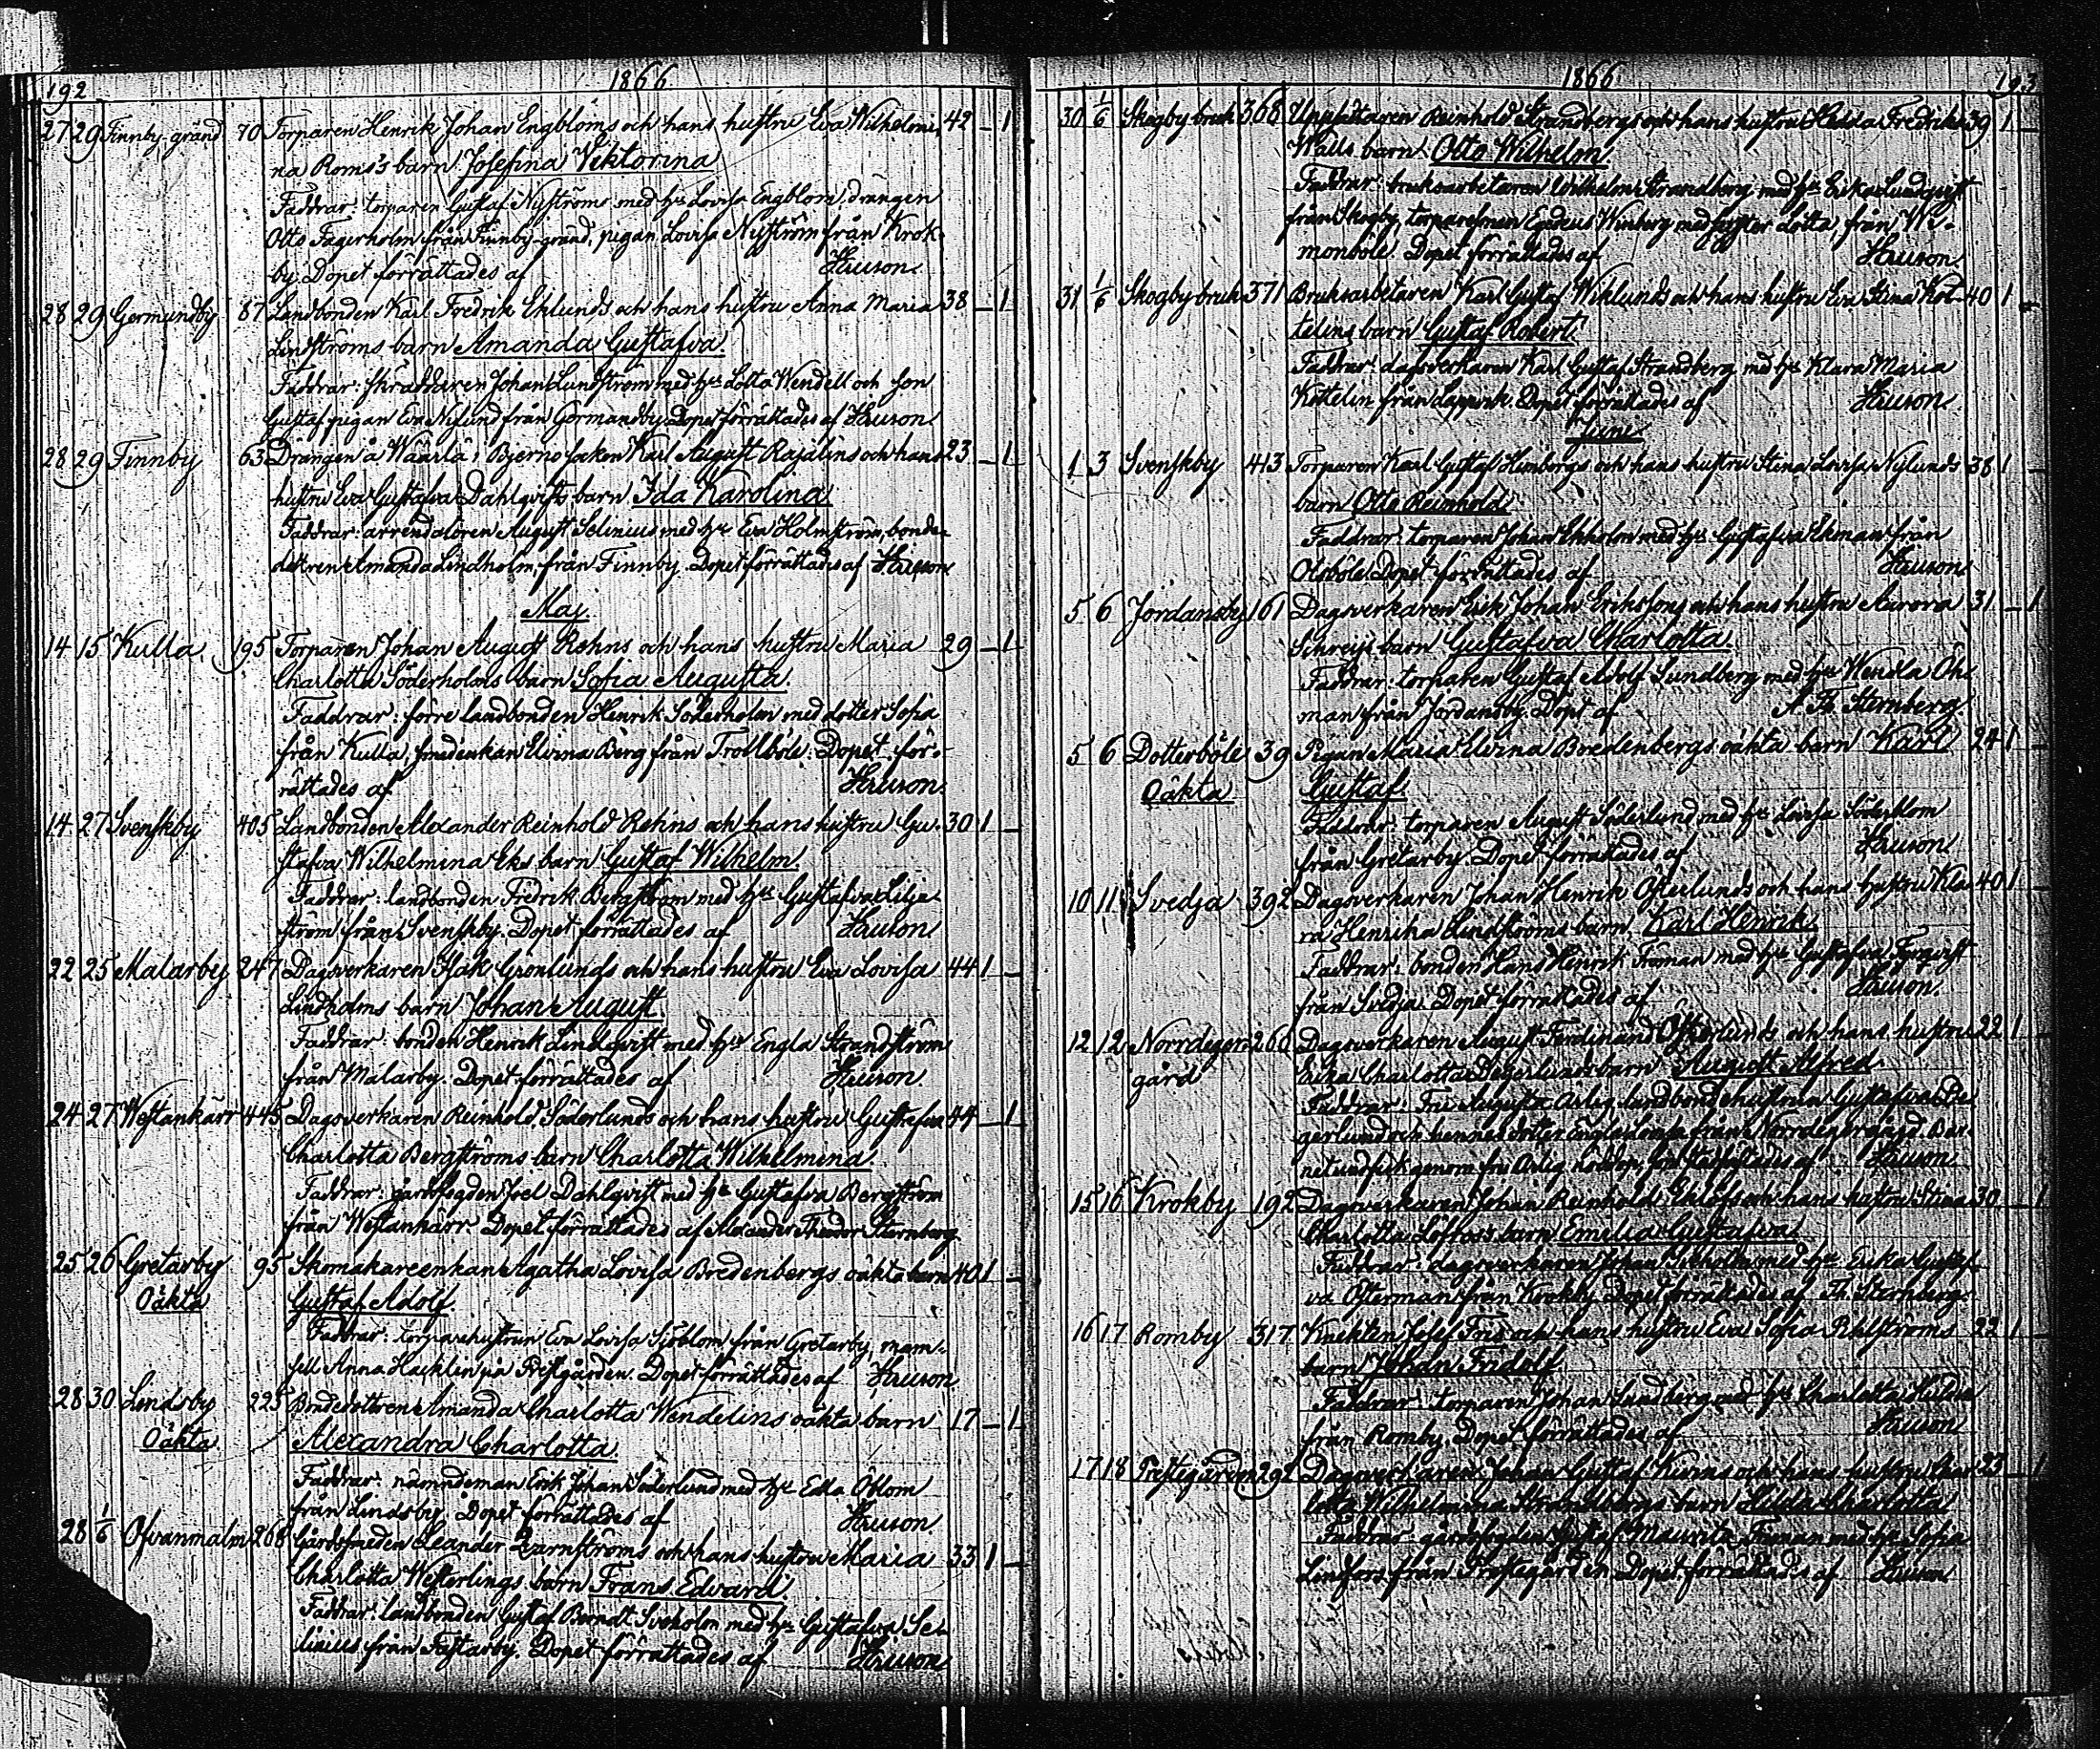 192 1866
27 29 Finnby-gränd 70 Torparen Henrik Johan Engbloms och hans hustru Eva Wilhelmi- 42 – 1
na Roms's barn Josefina Viktorina
Faddrar: torparen Gustaf Nyströms med h:u Lovisa Engblom, drängen
Otto Fagerholm från Finnby-gränd, pigan Lovisa Nyström från Krok-
by. Dopet förrättades af Heurson
28 29 Germundby 87 Landbonden Karl Fredrik Eklunds och hans hustru Anna Maria 38 – 1
Lindströms barn Amanda Gustafva
Faddrar: skräddaren Johan Lundström med h:u Lotta Wendell och son
Gustaf, pigan Eva Nylund från Germundby. Dopet förrättades af Heurson
28 29 Finnby 63 Drängen å Wäärlä i Bjerno socken Karl August Rajalins och hans 23 – 1
hustru Eva Gustafva Dahlqvists barn Ida Karolina
Faddrar: arrendatoren August Selinius med h:u Eva Holmström, bonde-
dottren Amanda Lindholm, från Finnby. Dopet förrättades af Heurson
Maj
14 15 Kulla 195 Torparen Johan August Rehns och hans hustru Maria 29 – 1
Charlotta Söderholms barn Sofia Augusta
Faddrar: förre landbonden Henrik Söderholm med dotter Sofia
från Kulla, smedenkan Elvina Berg från Trollböle. Dopet för-
rättades af Heurson
14 27 Svenskby 405 Landbonden Alexander Reinhold Rehns och hans hustru Gu- 30 1 –
stafva Wilhelmina Eks barn Gustaf Wilhelm
Faddrar: landbonden Fredrik Bergström med h:u Gustafva Lilje-
ström från Svenskby. Dopet förrättades af Heurson
22 25 Malarby 247 Dagsverkaren Isak Grönlunds och hans hustru Eva Lovisa 44 1 –
Lindholms barn Johan August
Faddrar: bonden Henrik Lindqvist med h:u Engla Strandström
från Malarby. Dopet förrättades af Heurson
24 27 Westankärr 445 Dagsverkaren Reinhold Söderlunds och hans hustru Gustafva 44 – 1
Charlotta Bergströms barn Charlotta Wilhelmina
Faddrar: gårdsfogden Joel Dahlqvist med h:u Gustafva Bergström
från Westankärr. Dopet förrättades af Alexander Theodor Sternberg
25 26 Gretarby 95 Skomakareenkan Agatha Lovisa Bredenbergs oäkta barn 40 1 –
Oäkta Gustaf Adolf
Faddrar: torparehustrun Eva Lovisa Sjöblom från Gretarby, mam-
sell Anna Hacklin på Prestgården. Dopet förrättades af Heurson
28 30 Lindsby 225 Bondedottren Amanda Charlotta Wendelins oäkta barn 17 – 1
Oäkta Alexandra Charlotta
Faddrar: nämndeman Erik Johan Söderlund med h:u Edla Öblom
från Lindsby. Dopet förrättades af Heurson
28 1/6 Ofvanmalm 268 Gårdssmeden Leander Qvarnströms och hans hustru Maria 33 1 –
Charlotta Westerlings barn Frans Edvard
Faddrar: landbonden Gustaf Berndt Söderholm med h:u Gustafva Se-
linius från Fastarby. Dopet förrättades af Heurson
1866 193
30 1/6 Skogby bruk 368 Uppsättaren Reinhold Strandbergs och hans hustru Hedda Fredrika 39 1 –
Walls barn Otto Wilhelm
Faddrar: bruksarbetaren Wilhelm Strandberg med h:u Erika Lundqvist
från Skogby, torparesonen Egideus Winberg med syster Lotta, från Wi-
monböle. Dopet förrättades af Heurson
31 1/6 Skogby bruk 371 Bruksarbetaren Karl Gustaf Wiklunds och hans hustru Eva Stina Kot- 40 1 –
telins barn Gustaf Robert
Faddrar: dagsverkaren Karl Gustaf Strandberg med h:u Klara Maria
Kottelin från Lappvik. Dopet förrättades af Heurson
Juni
1 3 Svenskby 413 Torparen Karl Gustaf Himbergs och hans hustru Stina Lovisa Nylunds 38 1 –
barn Otto Reinhold
Faddrar: torparen Johan Ekholm med h:u Gustafva Ekman från
Olsböle. Dopet förrättades af Heurson
5 6 Jordansby 161 Dagsverkaren Erik Johan Erikssons och hans hustru Aurora 31 – 1
Schreijs barn Gustafva Charlotta
Faddrar: torparen Gustaf Adolf Sundberg med h:u Wendla Öh-
man från Jordansby. Dopet af A. Th. Sternberg
5 6 Dotterböle 39 Pigan Maria Elvina Bredenbergs oäkta barn Karl 24 1 –
Oäkta Gustaf
Faddrar: torparen August Söderlund med h:u Lovisa Söderblom
från Gretarby. Dopet förrättades af Heurson
10 11 Svedja 392 Dagsverkaren Johan Henrik Österlunds och hans hustru Kla- 40 1 –
ra Henrika Lindströms barn Karl Henrik
Faddrar: bonden Hans Henrik Froman med h:u Gustafva
från Svedja. Dopet förrättades af Heurson
12 12 Norrdeger- 260 Dagsverkaren August Ferdinand Österlunds och hans hustru 22 1 –
gård Erika Charlotta Degerlunds barn August Alfred
Faddrar: Fru Augusta Arlig, landbondehustrun Gustafva De-
gerlund och hennes dotter Engla Lovisa från Norrdegergård. Bar-
net undfick genom fru Arlig nöddop, som stadfästades af Heurson
15 16 Krokby 192 Dagsverkaren Johan Reinhold Eklöfs och hans hustru Stina 30 – 1
Charlotta Löfross's barn Emelia Gustafva
Faddrar: dagsverkaren Johan med h:u Erika Gustaf-
va Österman från Krokby. Dopet förrättades af Th. Sternberg
16 17 Romby 317 Knekten Josef Fris och hans hustru Eva Sofia Pihlströms 22 1 –
barn Johan Fridolf
Faddrar: torparen Johan Sundberg med h:u Charlotta
från Romby. Dopet förrättades af Heurson
17 18 Prestegården 292 Dagsverkaren Johan Gustaf och hans hustru Char- 23 – 1
lotta Wilhelmina Strandbergs barn Hilda Charlotta
Faddrar: gårdsfogden Gustaf Mauritz Froman med h:u Sofia
Lindfors från Prestegården. Dopet förrättades af Heurson